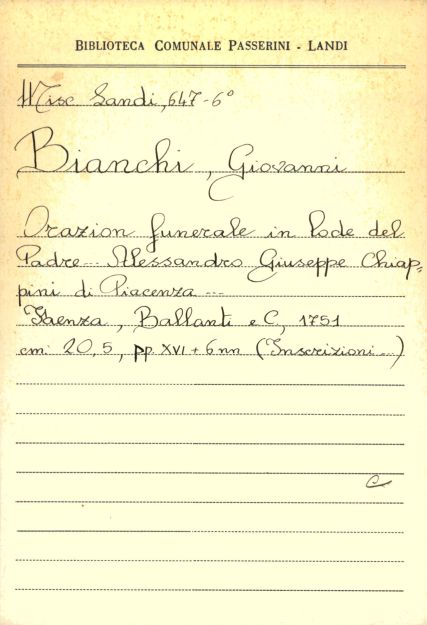 BIBLIOTECA COMUNALE PASSERINI - LANDI
Misc Landi, 647-6º
Bianchi, Giovanni
Orazion funerale in lode del
Padre... Alessandro Giuseppe Chiap=
pini di Piacenza ...
Faenza, Ballanti e C, 1751
cm. 20,5, pp XVI + 6 nn (Inscrizioni...)